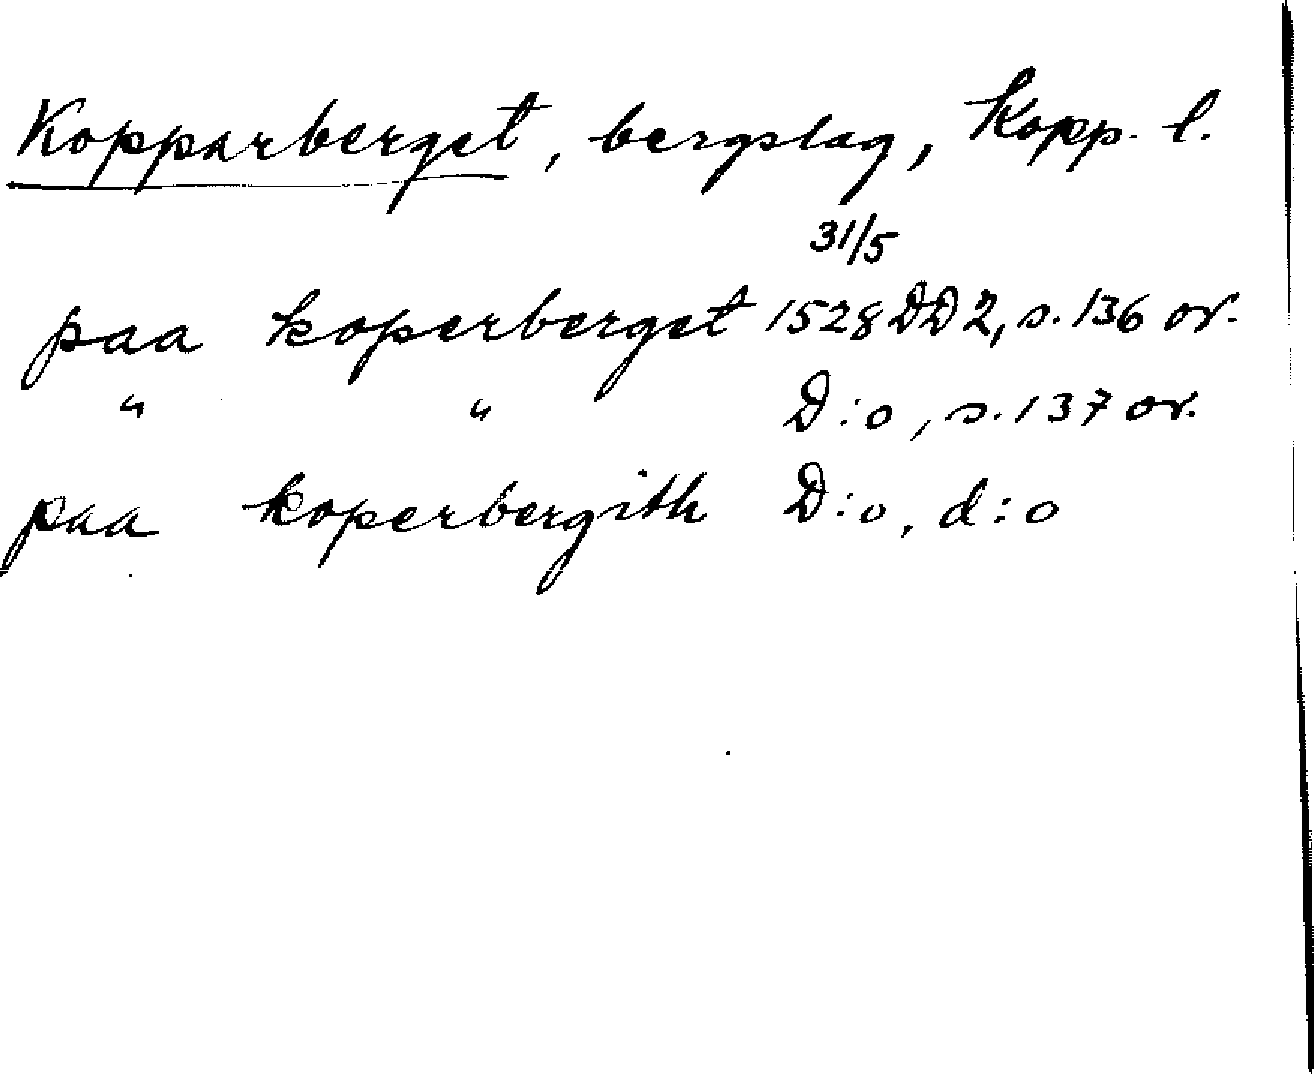 Kopparberget, bergslag, Kopp. l.
31/5
paa koperberget 1528 DD 2, s. 136 or.
" " D:o, s. 137 or.
paa koperbergith D:o, d:o